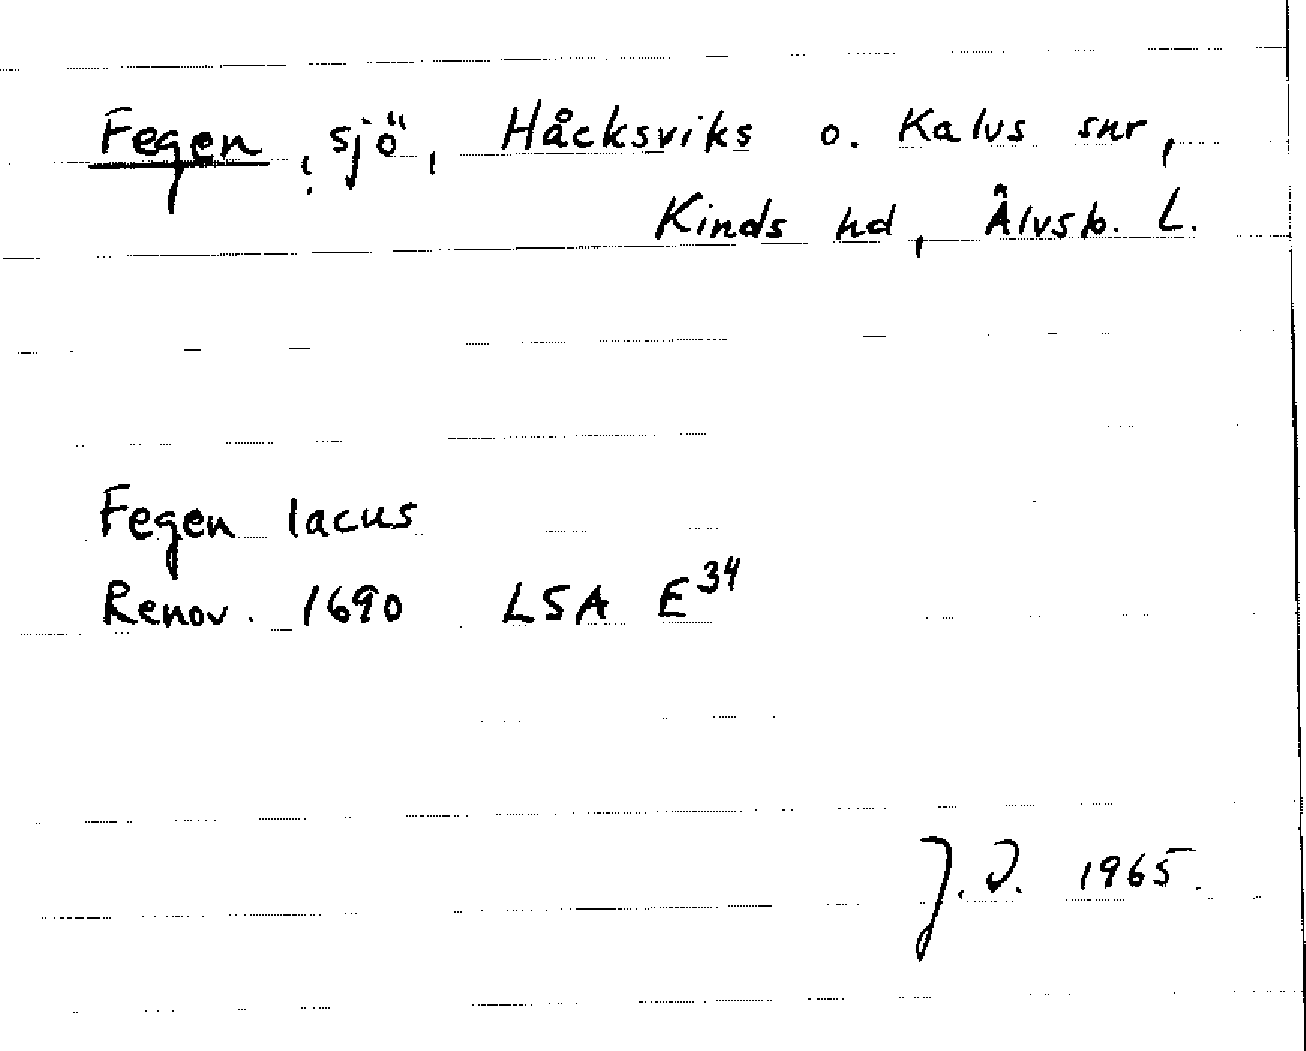 Fegen, sjö, Håcksviks o. Kalvs snr,
Kinds hd, Älvsb. L.
Fegen lacus
Renov. 1690 LSA E34
J.D. 1965.